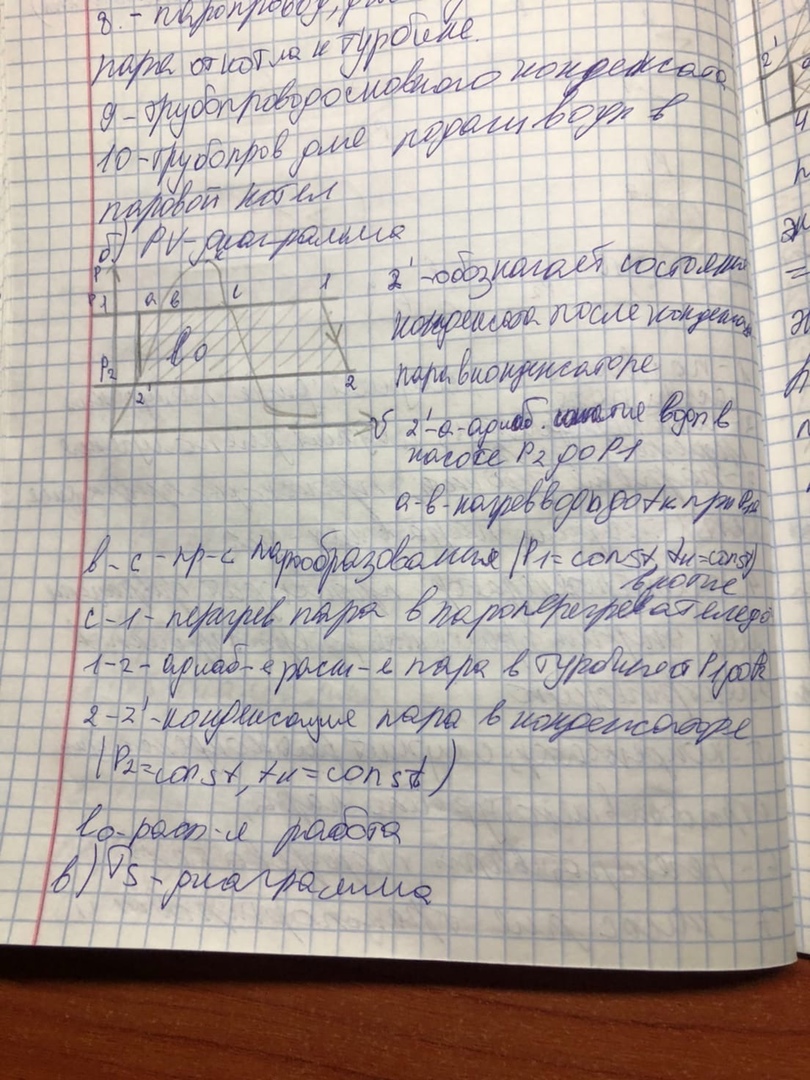 8. - паропровод, для
пара от котла к турбине.
9 - трубопровод основного конденсата
10 - трубопров для подачи воды в
паровой котел
б) PV-диаграмма
P
P1 a в c 1
l0
P2
2' 2
υ
2' - обозначает состояние
конденсата после конденса
пара в конденсаторе
2'-a-адиаб. сжатие воды в
насосе P2 до P1
a-в-нагрев воды до tн при P1
в-с-пр-с парообразования (P1=const, tн=const)
в котле
с-1-перегрев пара в пароперегревателе до
1-2-адиаб-е расш-е пара в турбине от P1 до P2
2-2'-конденсация пара в конденсаторе
(P2=const, tн=const)
l0-расп-я работа
в) TS-диаграмма
2'